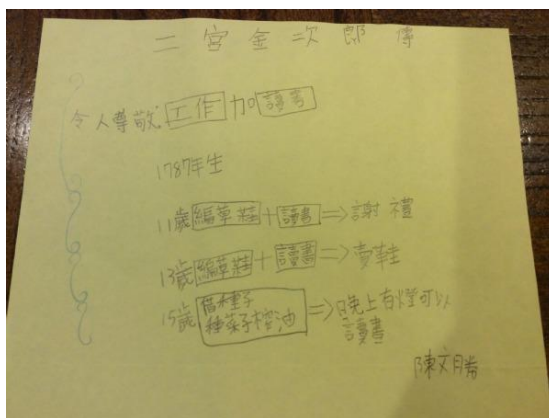 二宮金次郎傳
令人尊敬 工作 加 讀書
1787年生
11歲 編草鞋 + 讀書 => 謝禮
13歲 編草鞋 + 讀書 => 賣鞋
15歲 借種子
種菜子榨油 => 晚上有燈可以
讀書
陳文勝